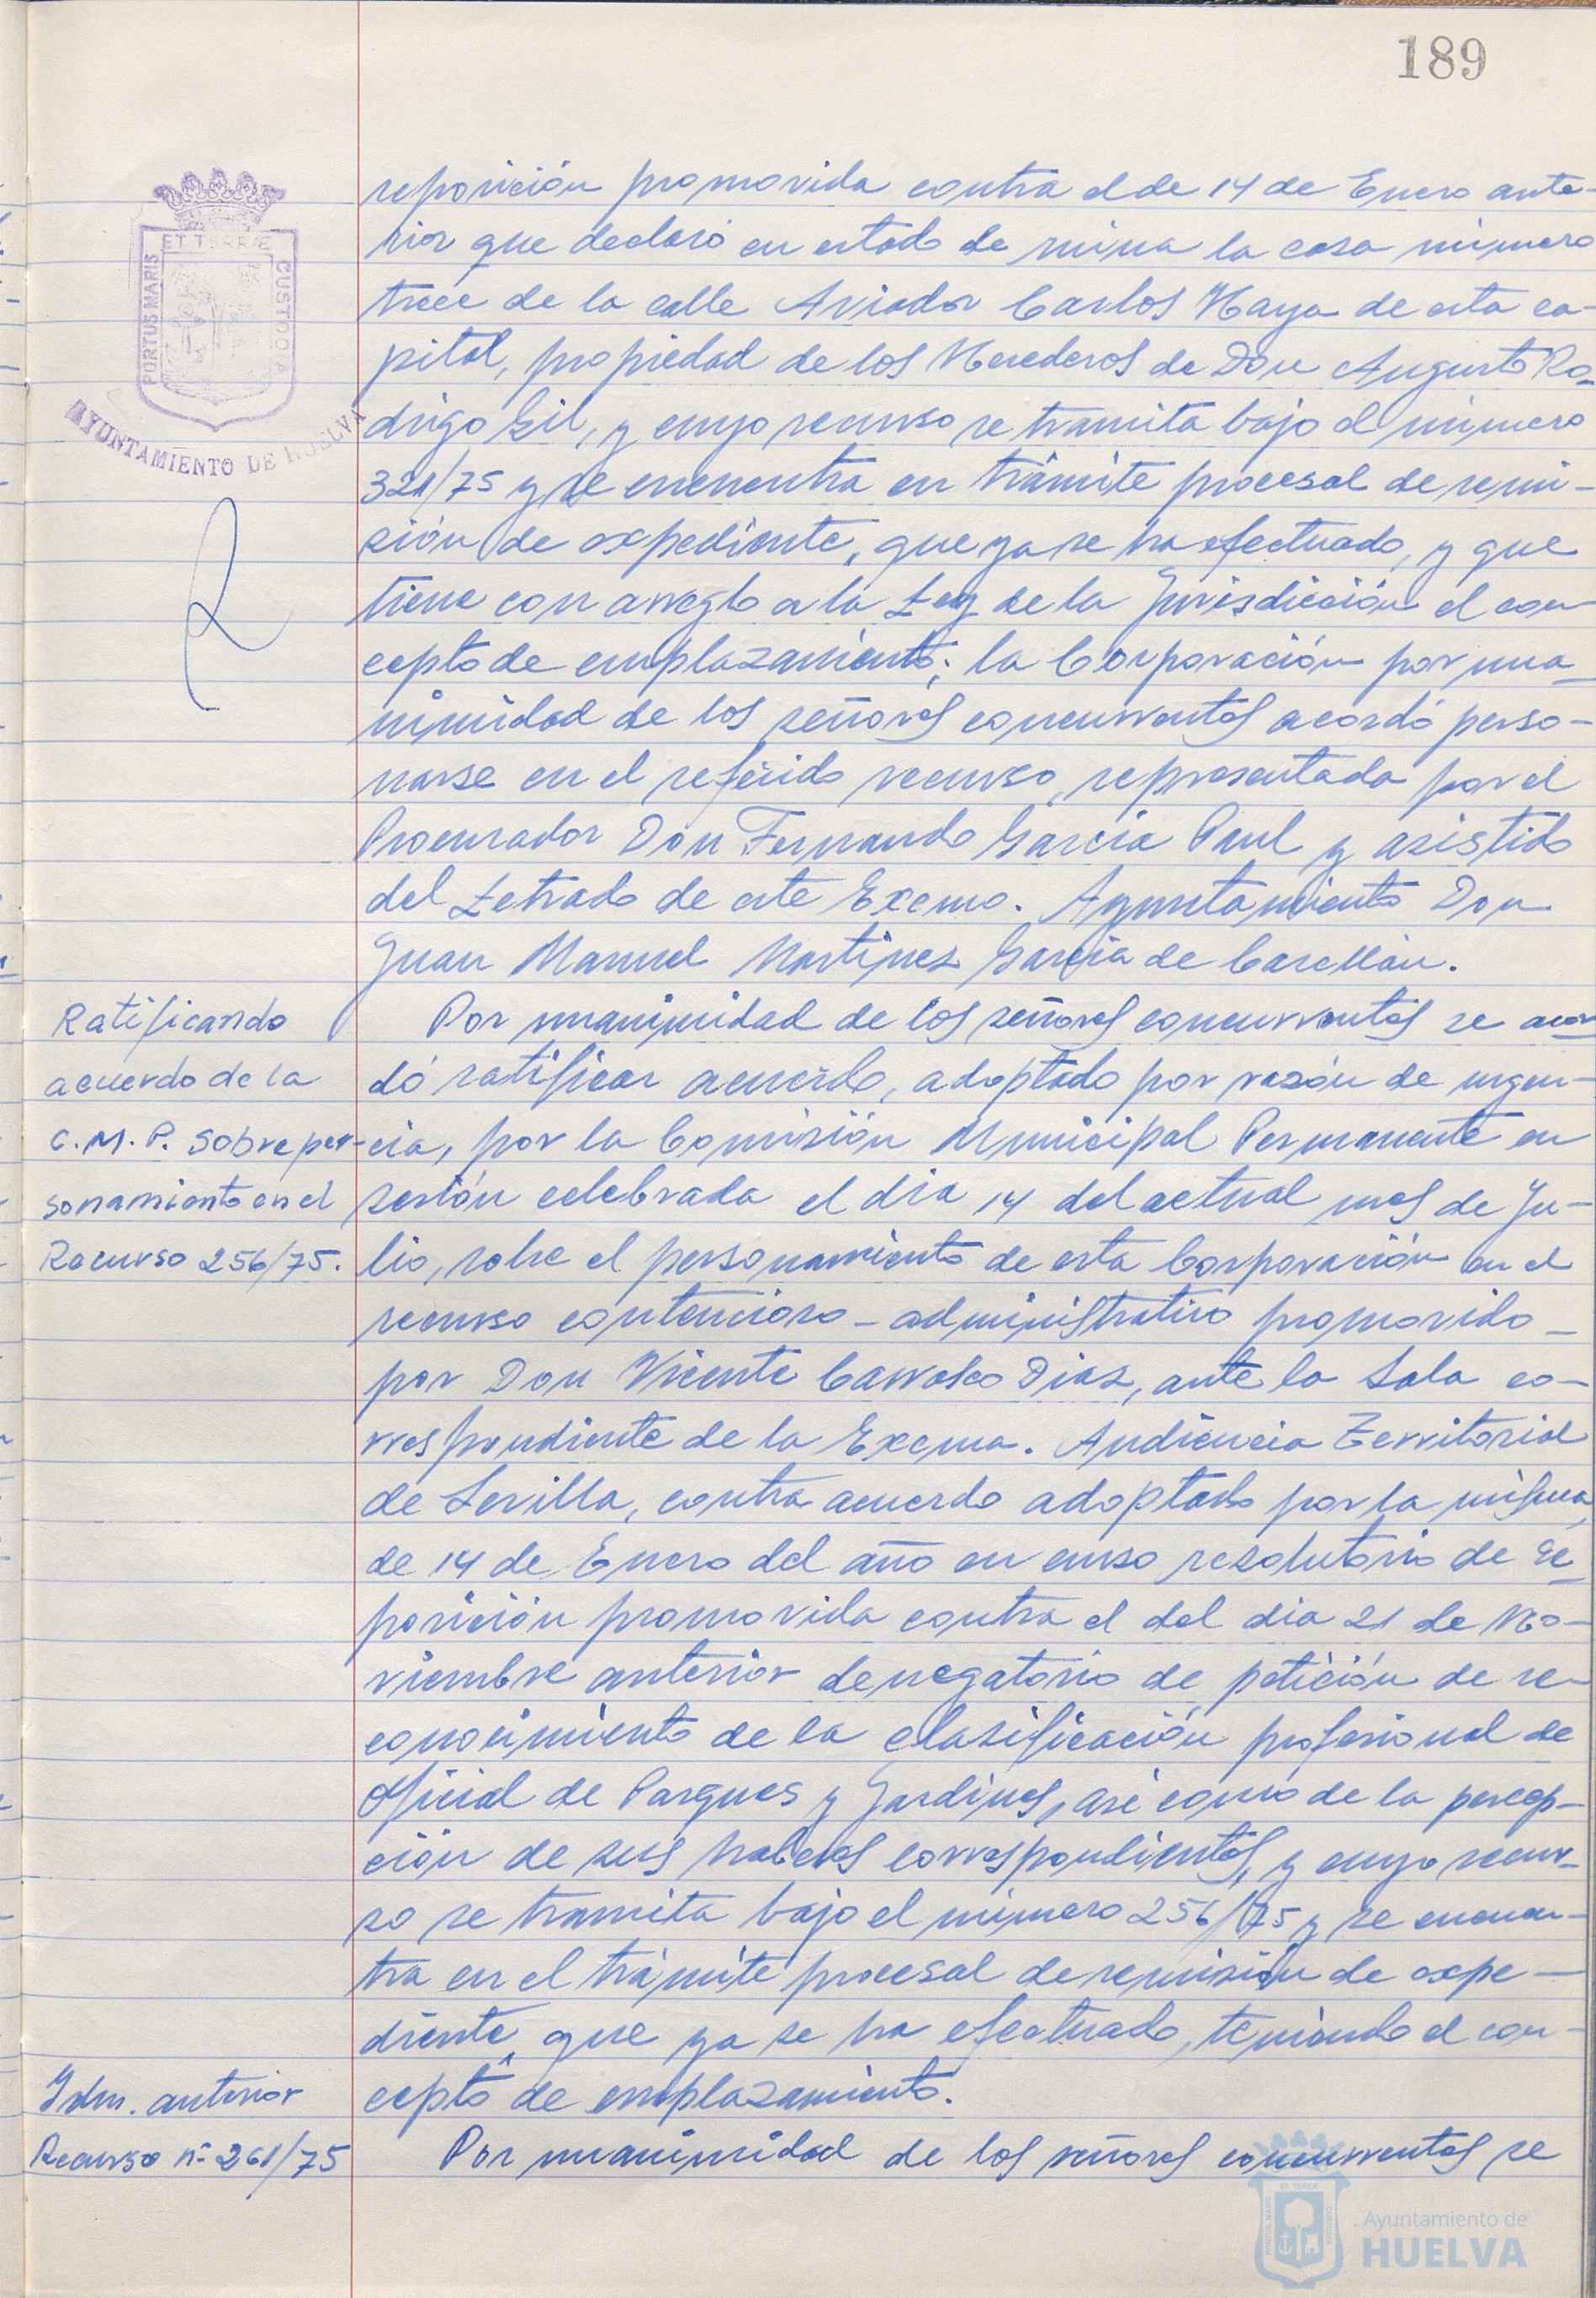 189
reposición promovida contra el de 14 de Enero ante-
rior que declaró en estado de ruina la casa número
trece de la calle Aviador Carlos Haya de esta ca-
pital, propiedad de los Herederos de Don Augusto Ro-
drigo Gil, y cuyo recurso se tramita bajo el número
321/75 y se encuentra en trámite procesal de remi-
sión de expediente, que ya se ha efectuado, y que
tiene con arreglo a la Ley de la Jurisdicción el con
cepto de emplazamiento; la Corporación por una_
nimidad de los señores concurrentes acordó perso-
narse en el referido recurso, representada por el
Procurador Don Fernando García Paul y asistido
del Letrado de este Excmo. Ayuntamiento Don
Juan Manuel Martinez García de
Ratificando
acuerdo de la
C.M.P. sobre per-
sonamiento en el
Recurso 256/75.
Por unanimidad de los señores concurrentes se acor
dó ratificar acuerdo, adoptado por razón de urgen-
cia, por la Comisión Municipal Permanente en
sesión celebrada el dia 14 del actual mes de Ju-
lio, sobre el personamiento de esta Corporación en el
recurso contencioso-administrativo promovido_
por Don Vicente Carrasco Diaz, ante la Sala co-
rrespondiente de la Excma. Audiencia Territorial
de Sevilla, contra acuerdo adoptado por la misma,
de 14 de Enero del año en curso resolutorio de re_
posición promovida contra el del dia 21 de No-
viembre anterior denegatorio de petición de re-
conocimiento de la clasificación profesional de
Oficial de Parques y Jardines, asi como de la percep-
ción de sus haberes correspondientes, y cuyo recur-
so se tramita bajo el número 256/75 y se encuen-
tra en el trámite procesal de remisión de expe-
diente, que ya se ha efectuado, teniendo el con-
cepto de emplazamiento.
Idm. anterior
Recurso nº 261/75
Por unanimidad de los señores concurrentes se
PORTUS MARIS
ET TERRAE
CUSTODIA
AYUNTAMIENTO DE HUELVA
Ayuntamiento de
HUELVA